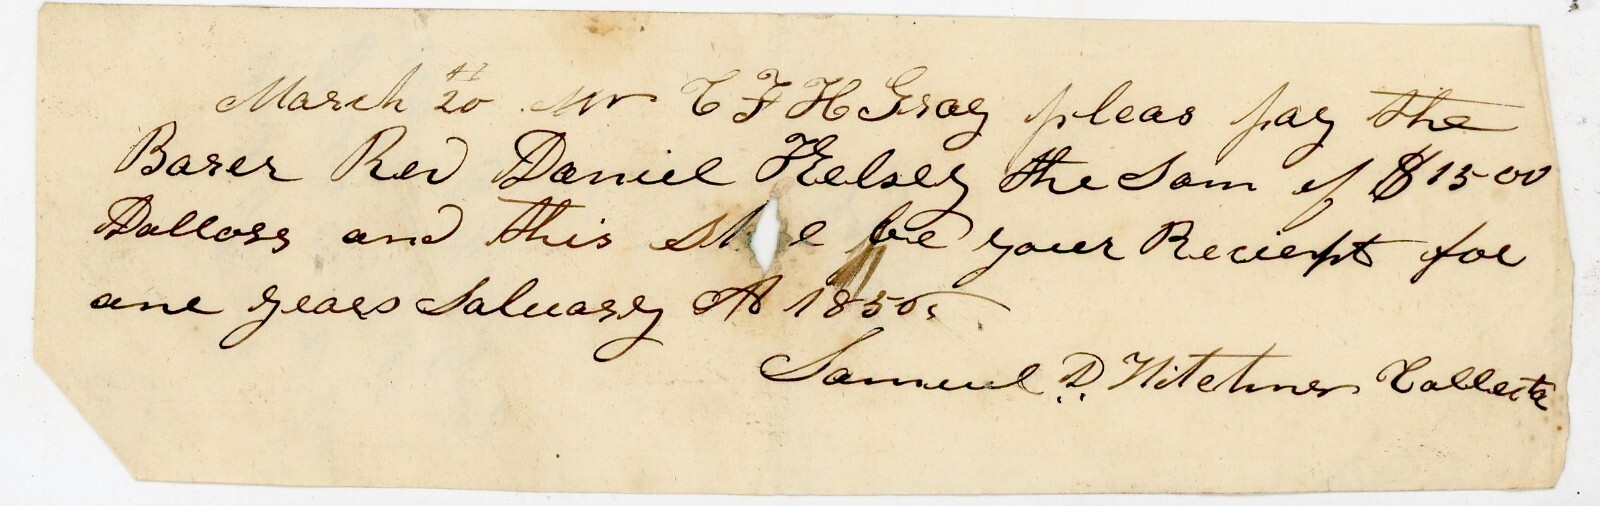 March 20th Mr C F H Gray pleas pay the
Barer Rev Daniel Kelsey the Sam of $15 00
Dallors and this sh l be your Reciept for
one years Saluary A 1850
Samuel D Hitchner Collecter